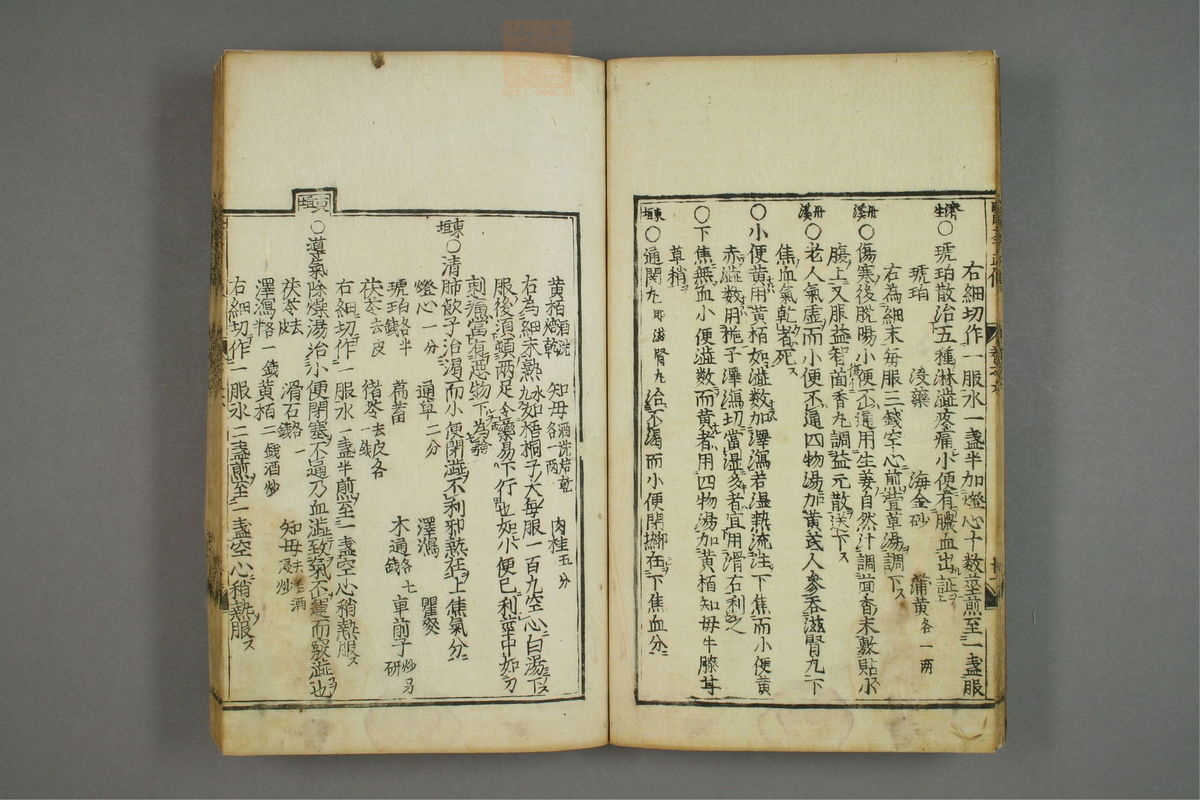 右細切作一服水一盞半加燈心十數莖煎至一盞服
濟生○琥珀散治五種淋澁疼痛小便有膿血出証
琥珀 没藥 海金砂 蒲黄各一两
右為細末毎服三錢空心煎萱草湯調下ス
丹溪○傷寒後脫陽小便不通用生姜自然汁調茴香末敷貼小
腹上又服益智茴香丸調益元散送下ス
丹溪○老人氣虛而小便不通四物湯加黄芪人參吞滋腎丸下
焦血氣乾者死ス
○小便黄用黄栢如澁數加澤瀉若湿熱流注下焦而小便黄
赤澁數用梔子澤瀉切當湿多者宜用滑石利之
○下焦無血小便澁數而黄者用四物湯加黄栢知母牛膝甘
草稍
東垣○通関丸即滋腎丸治不渴而小便閉㿈在下焦血分
黄栢酒洗焙乾 知母酒洗焙乾各一两 肉桂五分
右為細末熟水丸如梧桐子大毎服一百丸空心白湯下ス
服後須頓兩足令藥易下行也如小便已利莖中如刀
刺痛當有惡物下為驗
東垣○清肺飲子治渴而小便閉澁不利邪熱在上焦氣分
燈心一分 通草二分 澤瀉 瞿麥
琥珀各半錢 萹蓄 木通各七錢 車前子炒另研
茯苓去皮 猪苓去皮各一錢
右細切作一服水一盞半煎至一盞空心稍熱服ス
東垣
○導氣除燥湯治小便閉塞不通乃血澁致氣不運而竅澁也
茯苓去皮 滑石各一錢 知母去毛酒浸炒
澤瀉各一錢半 黄栢二錢酒炒
右細切作一服水二盞煎至一盞空心稍熱服ス